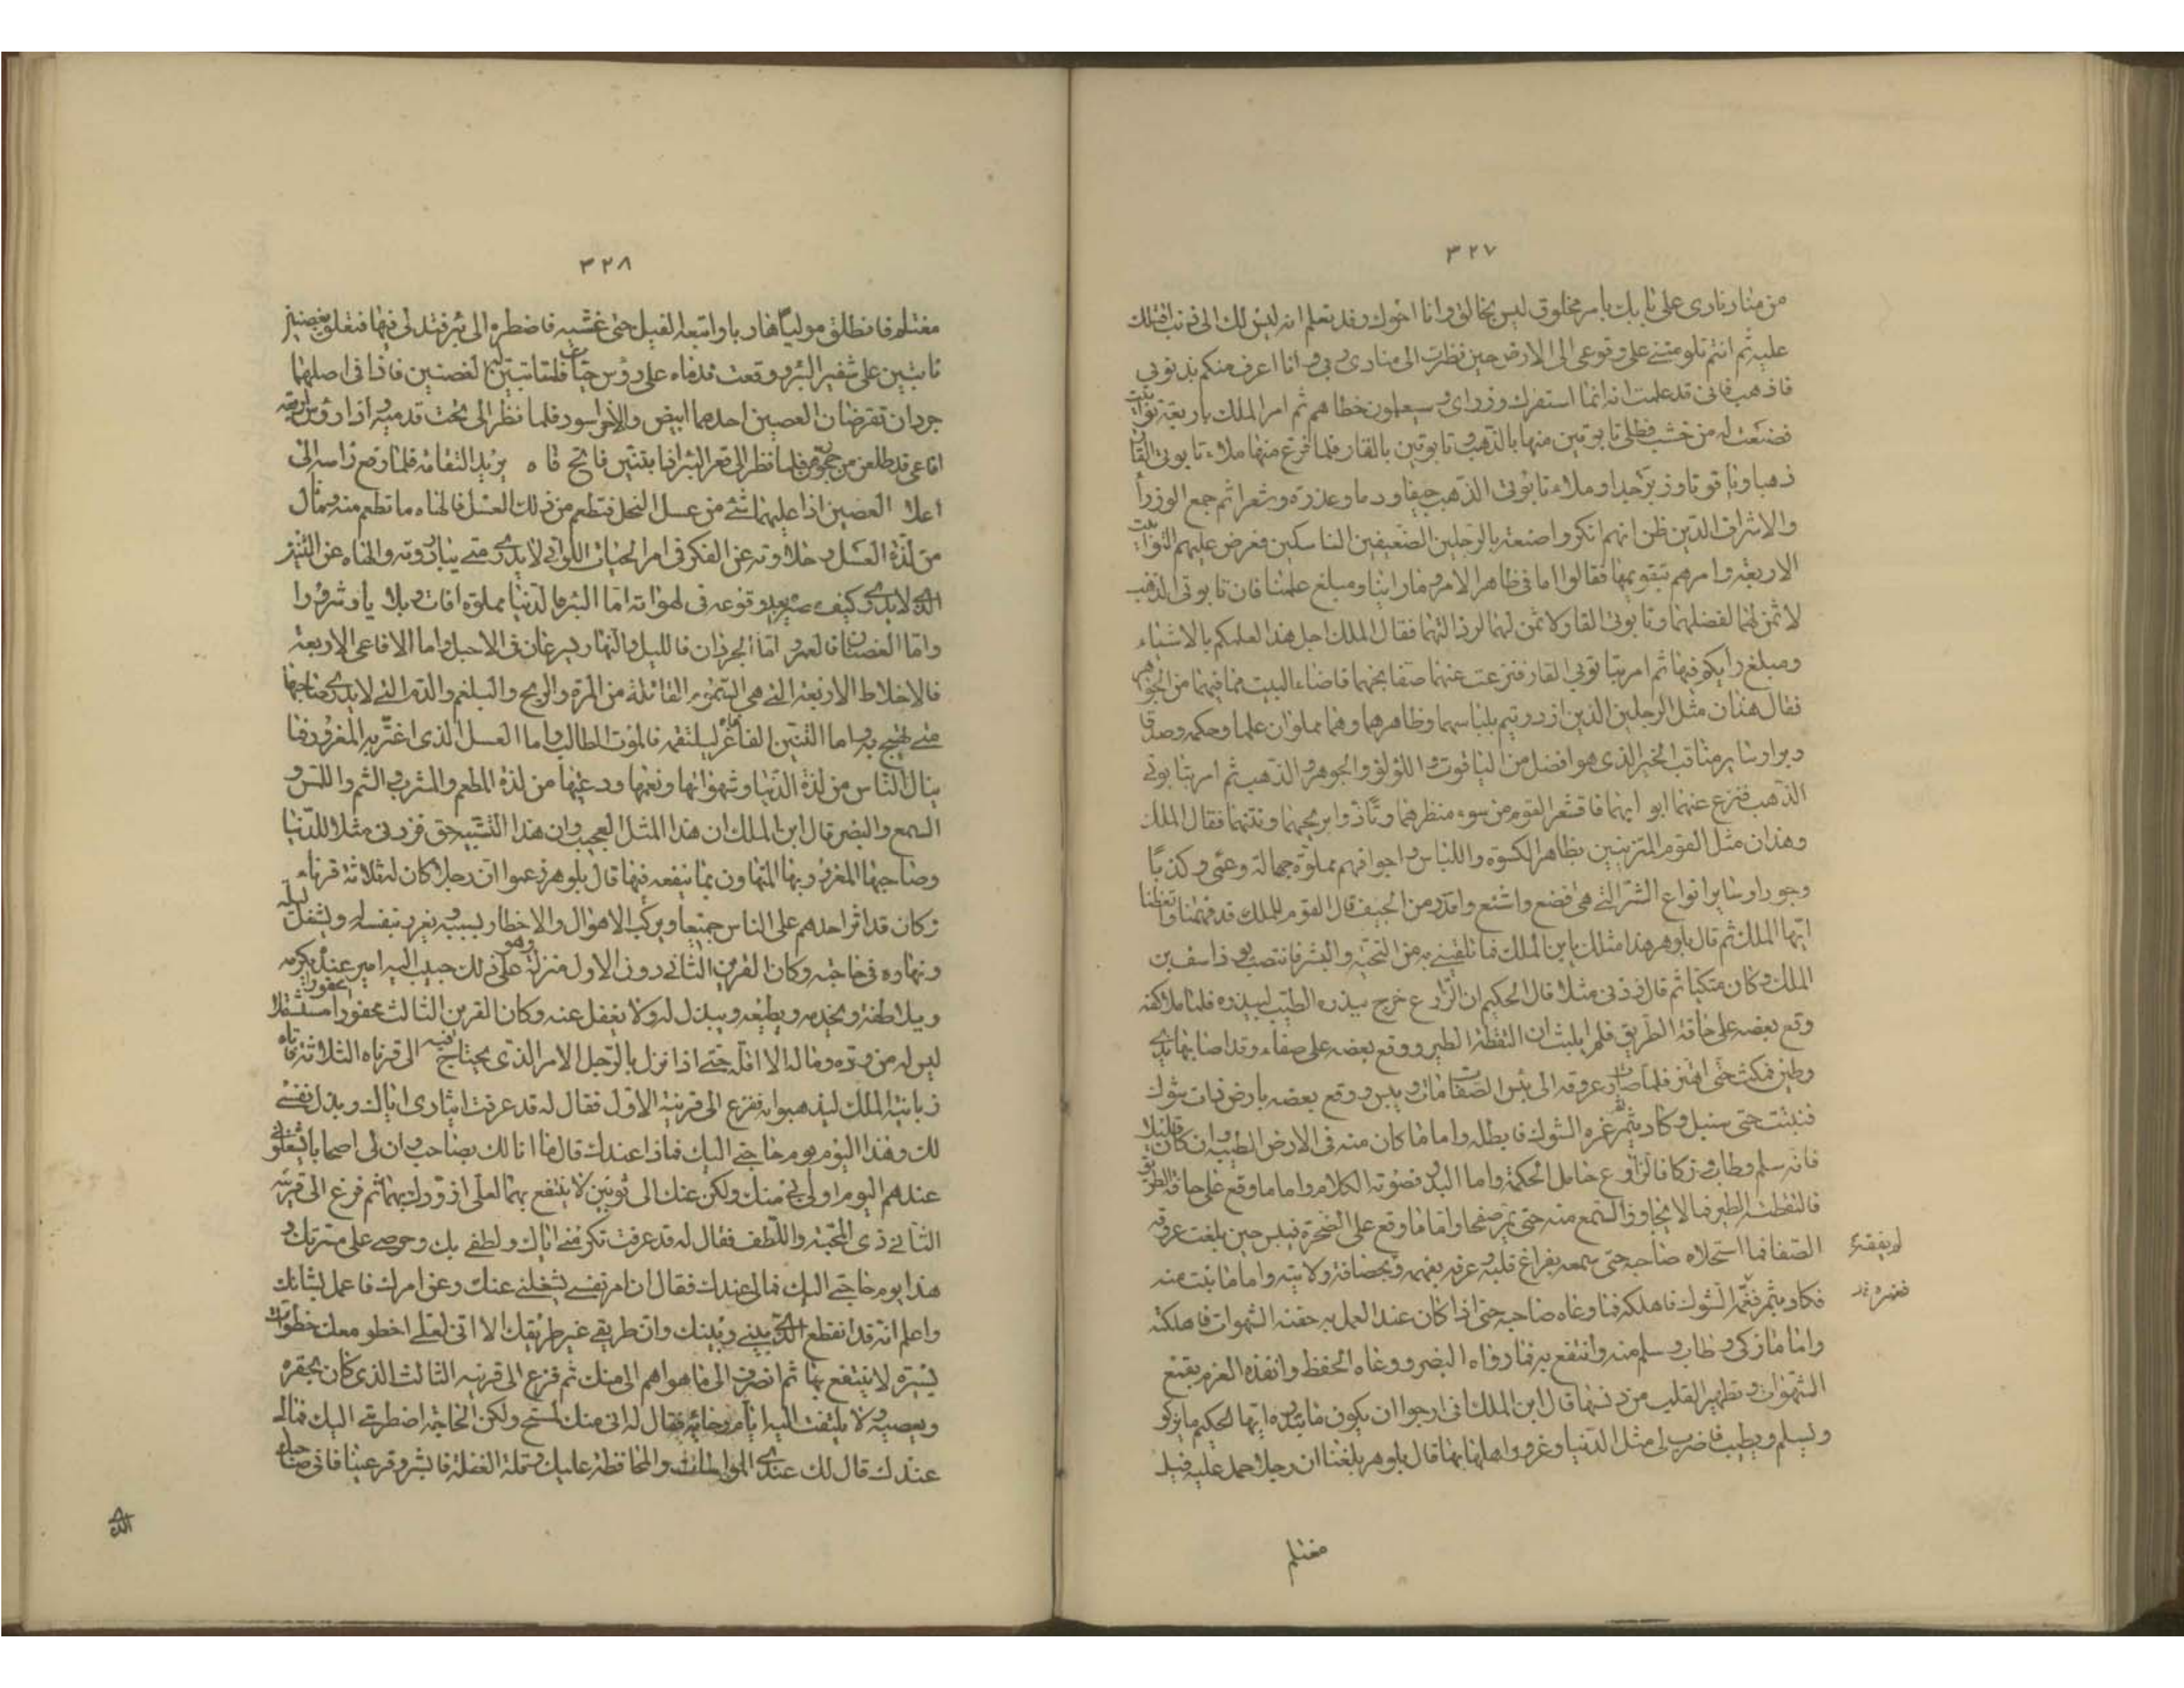 ٣٢٧
من مناد نادى على بابك بامر مخلوق ليس بخالق وانا اخوك وقد تعلم انه ليس لك الى ذنب اقتلك
عليه ثم انتم تلومننى على وقوعى الى الارض حين نظرت الى منادى ربى وانا اعرف منكم بذنوبى
فاذهب فانى قد علمت انه انما استفزك وزراى وسيعلمون خطاهم ثم امر الملك باربعة توابيت
فصنعت له من خشب فطلى تابوتين منها بالذهب وتابوتين بالقار فلما فرغ منها ملاء تابوتى القار
ذهبا وياقوتا وزبرجدا وملاء تابوتى الذهب جيفا ودما وعذرة وشعرا ثم جمع الوزرا
والاشراف الذين ظن انهم انكروا صنعه بالرجلين الضعيفين الناسكين فعرض عليهم التوابيت
الاربعة وامرهم بتقويمها فقالوا اما فى ظاهر الامر وما راينا ومبلغ علمنا فان تابوتى الذهب
لا ثمن لهما لفضلهما وتابوتى القار لا ثمن لهما لرذالتهما فقال الملك اجل هذا لعلمكم بالاشياء
ومبلغ رايكم فيها ثم امر بتابوتى القار فنزعت عنهما صفايحهما فاضاء البيت مما فيهما من الجواهر
فقال هذان مثل الرجلين الذين ازدريتم بلباسهما وظاهرهما وهما مملوان علما وحكمة وصدقا
وبرا وساير مناقب الخير الذى هو افضل من الياقوت واللؤلؤ والجوهر والذهب ثم امر بتابوتى
الذهب فنزع عنهما ابوابهما فاقشعر القوم من سوء منظرهما وتاذوا بريحهما ونتنهما فقال الملك
وهذان مثل القوم المتزينين بظاهر الكسوة واللباس واجوافهم مملوة جهالة وعمى وكذبا
وجورا وساير انواع الشر التى هى افضع واشنع واقذر من الجيف قال القوم للملك قد فهمنا واتعظنا
ايها الملك ثم قال بلوهر هذا مثلك يابن الملك فما تلقيتنى به من التحية والبشر فانتصب يوذاسف بن
الملك وكان متكيا ثم قال زدنى مثلا قال الحكيم ان الزارع خرج ببذره الطيب ليبذره فلما ملا كفه
وقع بعضه على حافة الطريق فلم يلبث ان التقطه الطير ووقع بعضه على صفاء وقد اصابها ندى
وطين فمكث حتى اهتز فلما صارت عروقه الى يبس الصفا مات ويبس ووقع بعضه بارض ذات شوك
فنبتت حتى سنبل وكاد يثمر غمره الشوك فابطله واما ما كان منه فى الارض الطيبة وان كان قليلا
فانه سلم وطاب وزكا فالزارع حامل الحكمة واما البذر فضوته الكلام واما ما وقع على حافة الطريق
فالتقطت الطير فما لا يجاوز السمع منه حتى يمر صفحا واما ما وقع على الصخرة فيبس حين بلغت عروقه
الصفا فما استحلاه صاحبه حتى سمعه بفراغ قلبه وعرفه بفهمه وبحصافة ولا نية واما ما نبت منه
فكاد يثمر فغمر الشوك فاهلكه فما وعاه صاحبه حتى اذا كان عند العمل به حفته الشهوات فاهلكته
واما ما زكى وطاب وسلم منه وانتفع به فما رواه البصر ووعاه الحفظ وانفذه العزم بقمع
الشهوات وتطهير القلب من دنسها قال ابن الملك انى ارجوا ان يكون ما تبذره ايها الحكيم ما يزكو
ويسلم ويطيب فاضرب لى مثل الدنيا وغرور اهلها بها قال بلوهر بلغنا ان رجلا حمل عليه فيل
مغتلم
٣٢٨
مغتلم فانطلق موليا هاربا واتبعه الفيل حتى غشيه فاضطره الى بئر فتدلى فيها فتعلق بغصنين
نابتين على شفير البئر ووقعت قدماه على رؤس حيات فلما تبين له الغصنين فاذا فى اصلهما
جرذان تقرضان الغصين احدهما ابيض والاخر اسود فلما نظر الى تحت قدميه اذا رؤس اربعة
افاعى قد طلعن من جحرهن فلما نظر الى قعر البئر اذا بتنين فاتح فاه يريد التقامه فلما رفع راسه الى
اعلا الغصين اذا عليهما شئ من عسل النحل فتطعم من ذلك العسل فالهاه ما تطعم منه وما نال
من لذة العسل وحلاوته عن الفكر فى امر الحيات اللواتى لا يدرى متى يبادرونه والهاه عن التنين
الذى لا يدرى كيف مصيره بعد وقوعه فى لهواته اما البئر فالدنيا مملوة افات وبلايا وشرورا
واما الغصنان فالعمر واما الجرذان فالليل والنهار يسرعان فى الاجل واما الافاعى الاربعة
فالاخلاط الاربعة التى هى السموم القاتلة من المرة والريح والبلغم والدم التى لا يدرى صاحبها
متى تهيج به واما التنين الفاغر فاه ليلتقمه فالموت الطالب واما العسل الذى اغتر به المغرور فما
ينال الناس من لذة الدنيا وشهواتها ونعيمها ودعتها من لذة المطعم والمشرب والشم واللمس و
السمع والبصر قال ابن الملك ان هذا المثل لعجيب وان هذا التشبيه حق فزدنى مثلا للدنيا
وصاحبها المغرور بها المتهاون بما ينفعه فيها قال بلوهر زعموا ان رجلا كان له ثلاثة قرناء
وكان قد اثر احدهم على الناس جميعا ويركب الاهوال والاخطار بسببه ويغرر بنفسه له ويشغل ليله
ونهاره فى حاجته وكان القرين الثانى دون الاول منزلة وهو على ذلك حبيب اليه امير عنده يكرمه
ويلاطفه ويخدمه ويطيعه ويبذل له ولا يغفل عنه وكان القرين الثالث محقورا مستثقلا
ليس له من وده وماله الا اقله حتى اذا نزل بالرجل الامر الذى يحتاج فيه الى قرناه الثلاثة فاتاه
زبانية الملك ليذهبوا به ففزع الى قرينه الاول فقال له قد عرفت ايثارى اياك وبذل نفسى
لك وهذا اليوم يوم حاجتى اليك فماذا عندك قال ما انا لك بصاحب وان لى اصحابا يشغلونى
عندهم اليوم اولى بى منك ولكن عندى لك ثوبين لا ينتفع بهما لعلى ازودك بهما ثم فزع الى قرينه
الثانى ذى المحبة واللطف فقال له قد عرفت تكرمتى اياك ولطفى بك وحرصى على مسرتك و
هذا يوم حاجتى اليك فمالى عندك فقال ان امر نفسى يشغلنى عنك وعن امرك فاعمل لشانك
واعلم انه قد انقطع الذى بينى وبينك وان طريقى غير طريقك الا انى لعلى اخطو معك خطوات
يسيرة لا ينتفع بها ثم انصرف الى ما هو اهم الى منك ثم فزع الى قرينه الثالث الذى كان يحقره
ويعصيه ولا يلتفت اليه ايام رخائه فقال له انى منك لمستحى ولكن الحاجة اضطرتى اليك فمالى
عندك قال لك عندى المواسات والمحافظة عليك وقلة الغفلة فابشر وقر عينا فانى صاحبك
الذى